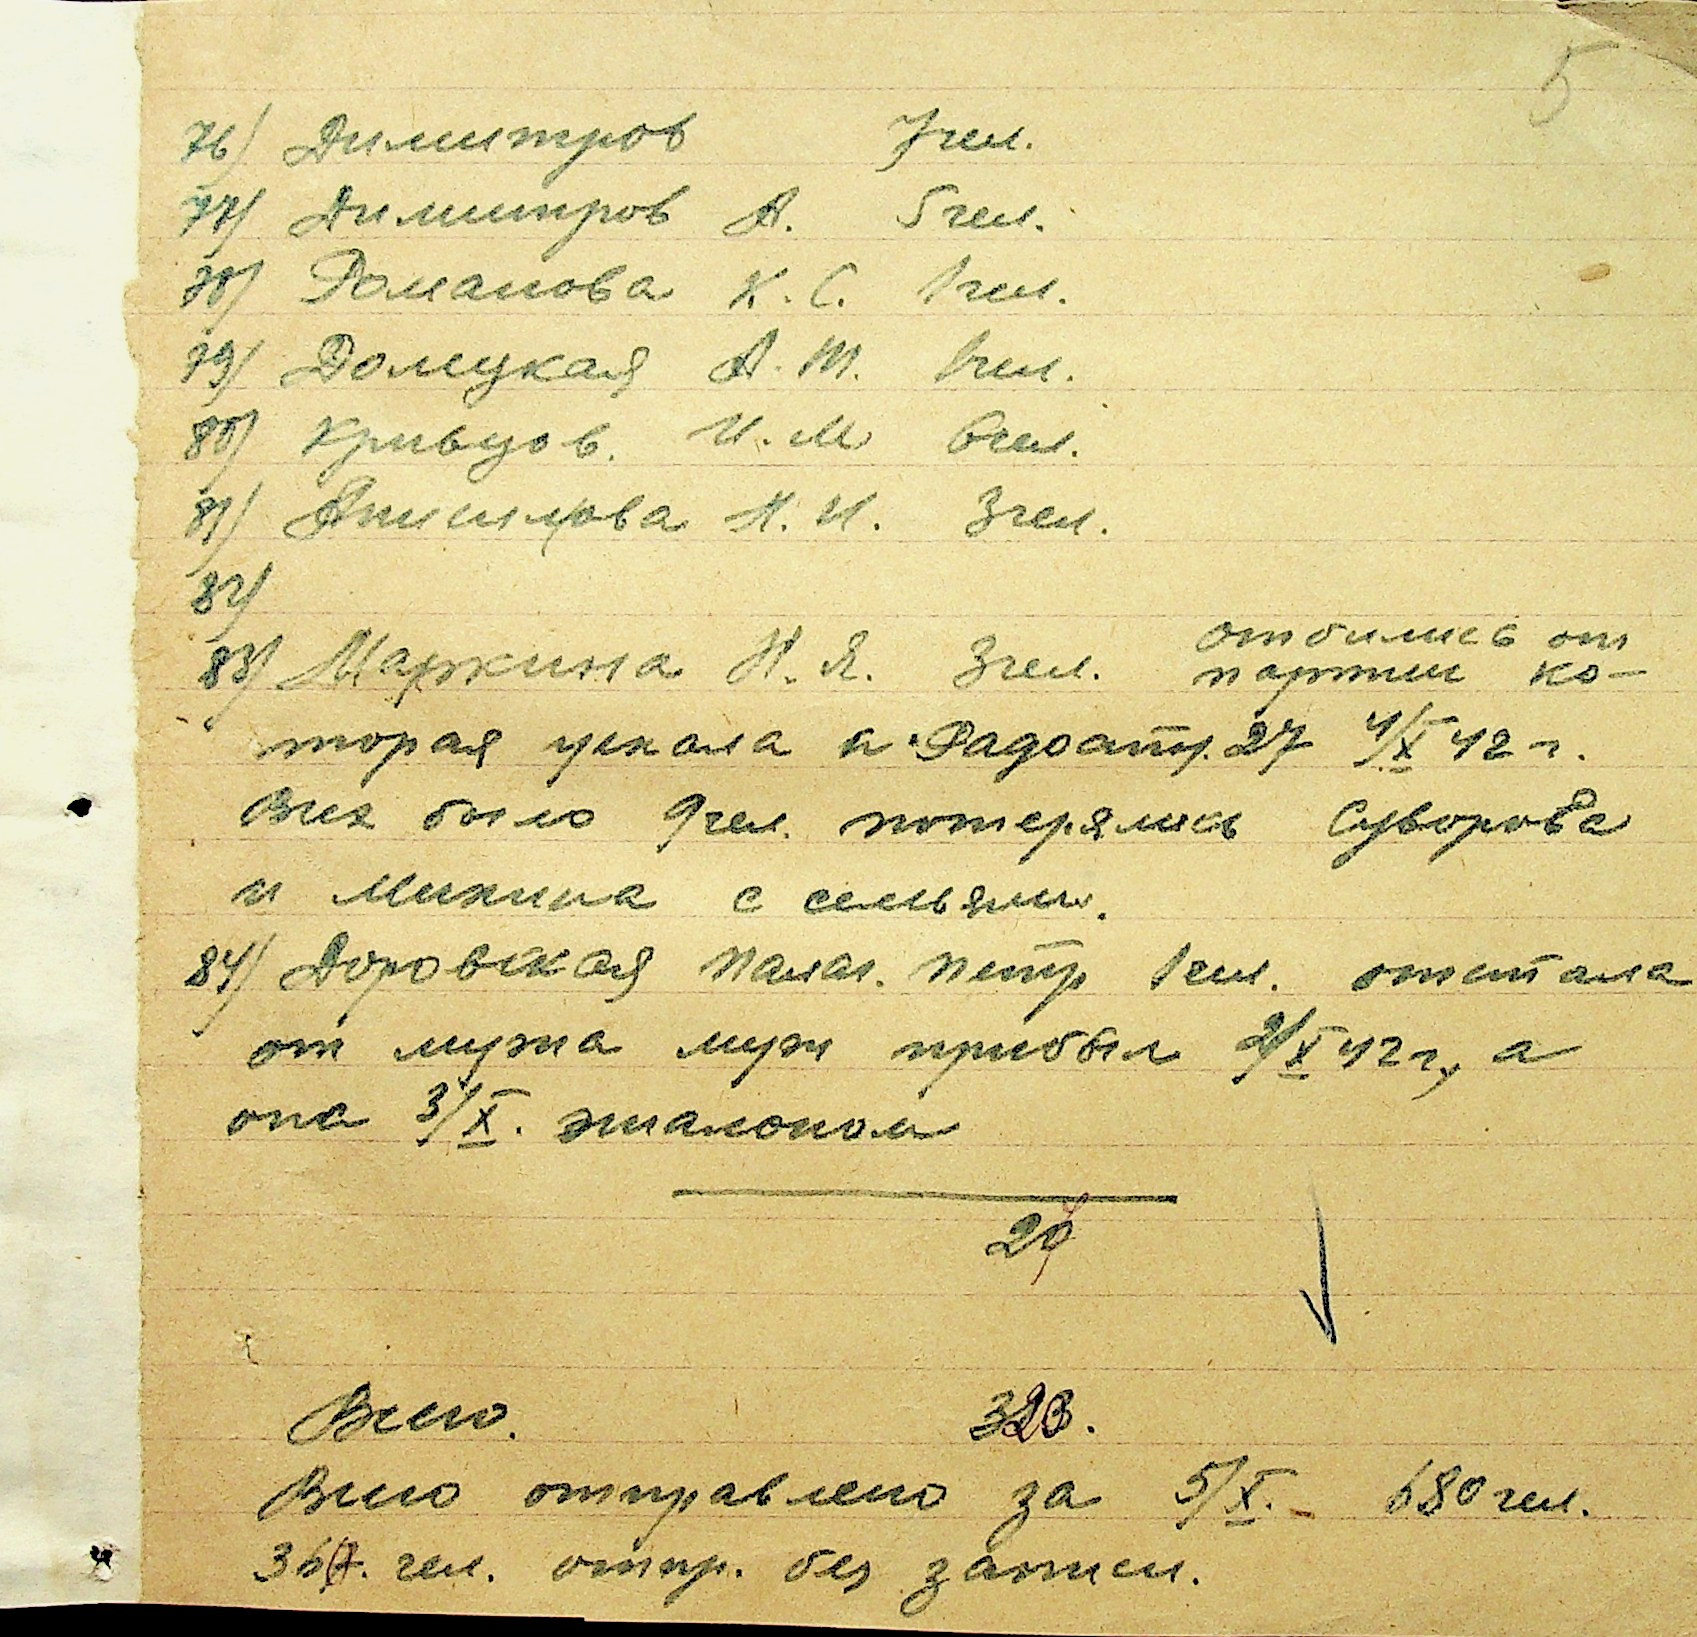 5
76) Димитров 7 чел.
77) Димитров А. 5 чел.
78) Романова К. С. 1 чел.
79) Домуцкая А. Т. 1 чел.
80) Кривцов. И. М 6 чел.
81) Анисимова Н. И. 3 чел.
82)
83) Маркина Н. Я. 3 чел. отбились от
партии ко-
торая уехала к Радоату. 27 4/X 42 г.
Всех было 9 чел. потерялись Суворова
и Михина с семьями.
84) Доровская Палаг. Петр 1 чел. отстала
от мужа муж прибыл 2/X 42 г, а
она 3/X. эшалоном
Всего. 323.
Всего отправлено за 5/X. - 680 чел.
чел. отпр. без записи.